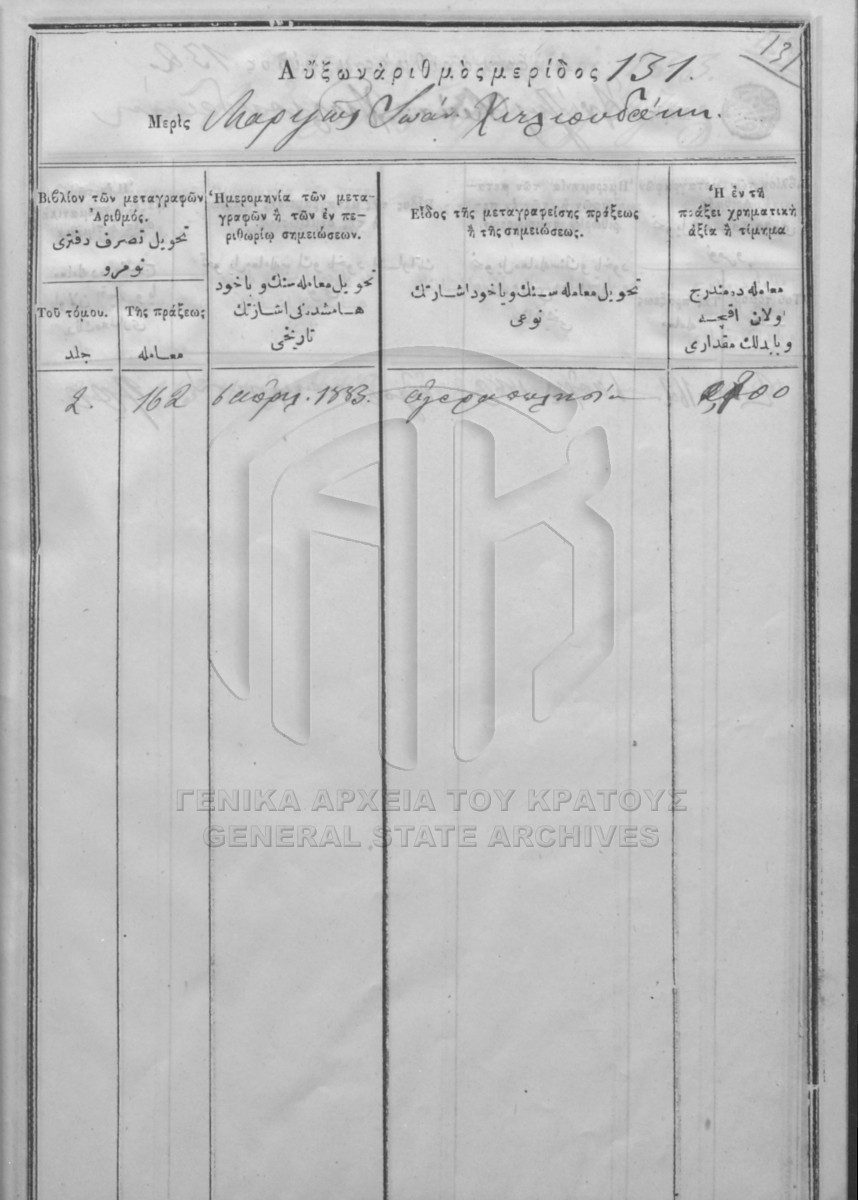 131
Αὔξων ἀριθμὸς μερίδος 131.
Μερὶς Μαριγῶς Ἰωάν. Χιλιουδάκη.
Βιβλίον τῶν μεταγραφῶν
Ἀριθμός.
تحويل تصرف دفترى
نومرو
Τοῦ τόμου.
جلد
Τῆς πράξεως
معامله
Ἡμερομηνία τῶν μετα-
γραφῶν ἢ τῶν ἐν πε-
ριθωρίῳ σημειώσεων.
تحويل معامله سنك و ياخود
هامشدنكى اشارتك
تاريخى
Εἶδος τῆς μεταγραφείσης πράξεως
ἢ τῆς σημειώσεως.
تحويل معامله سنك و ياخود اشارتك
نوعى
Ἡ ἐν τῇ
πράξει χρηματικὴ
ἀξία ἢ τίμημα
معامله ده مندرج
اولان اقچه
و يا بدلك مقدارى
2. 162 6 ἀπρ. 1883. ἀγοραπωλησία
ΓΕΝΙΚΑ ΑΡΧΕΙΑ ΤΟΥ ΚΡΑΤΟΥΣ
GENERAL STATE ARCHIVES